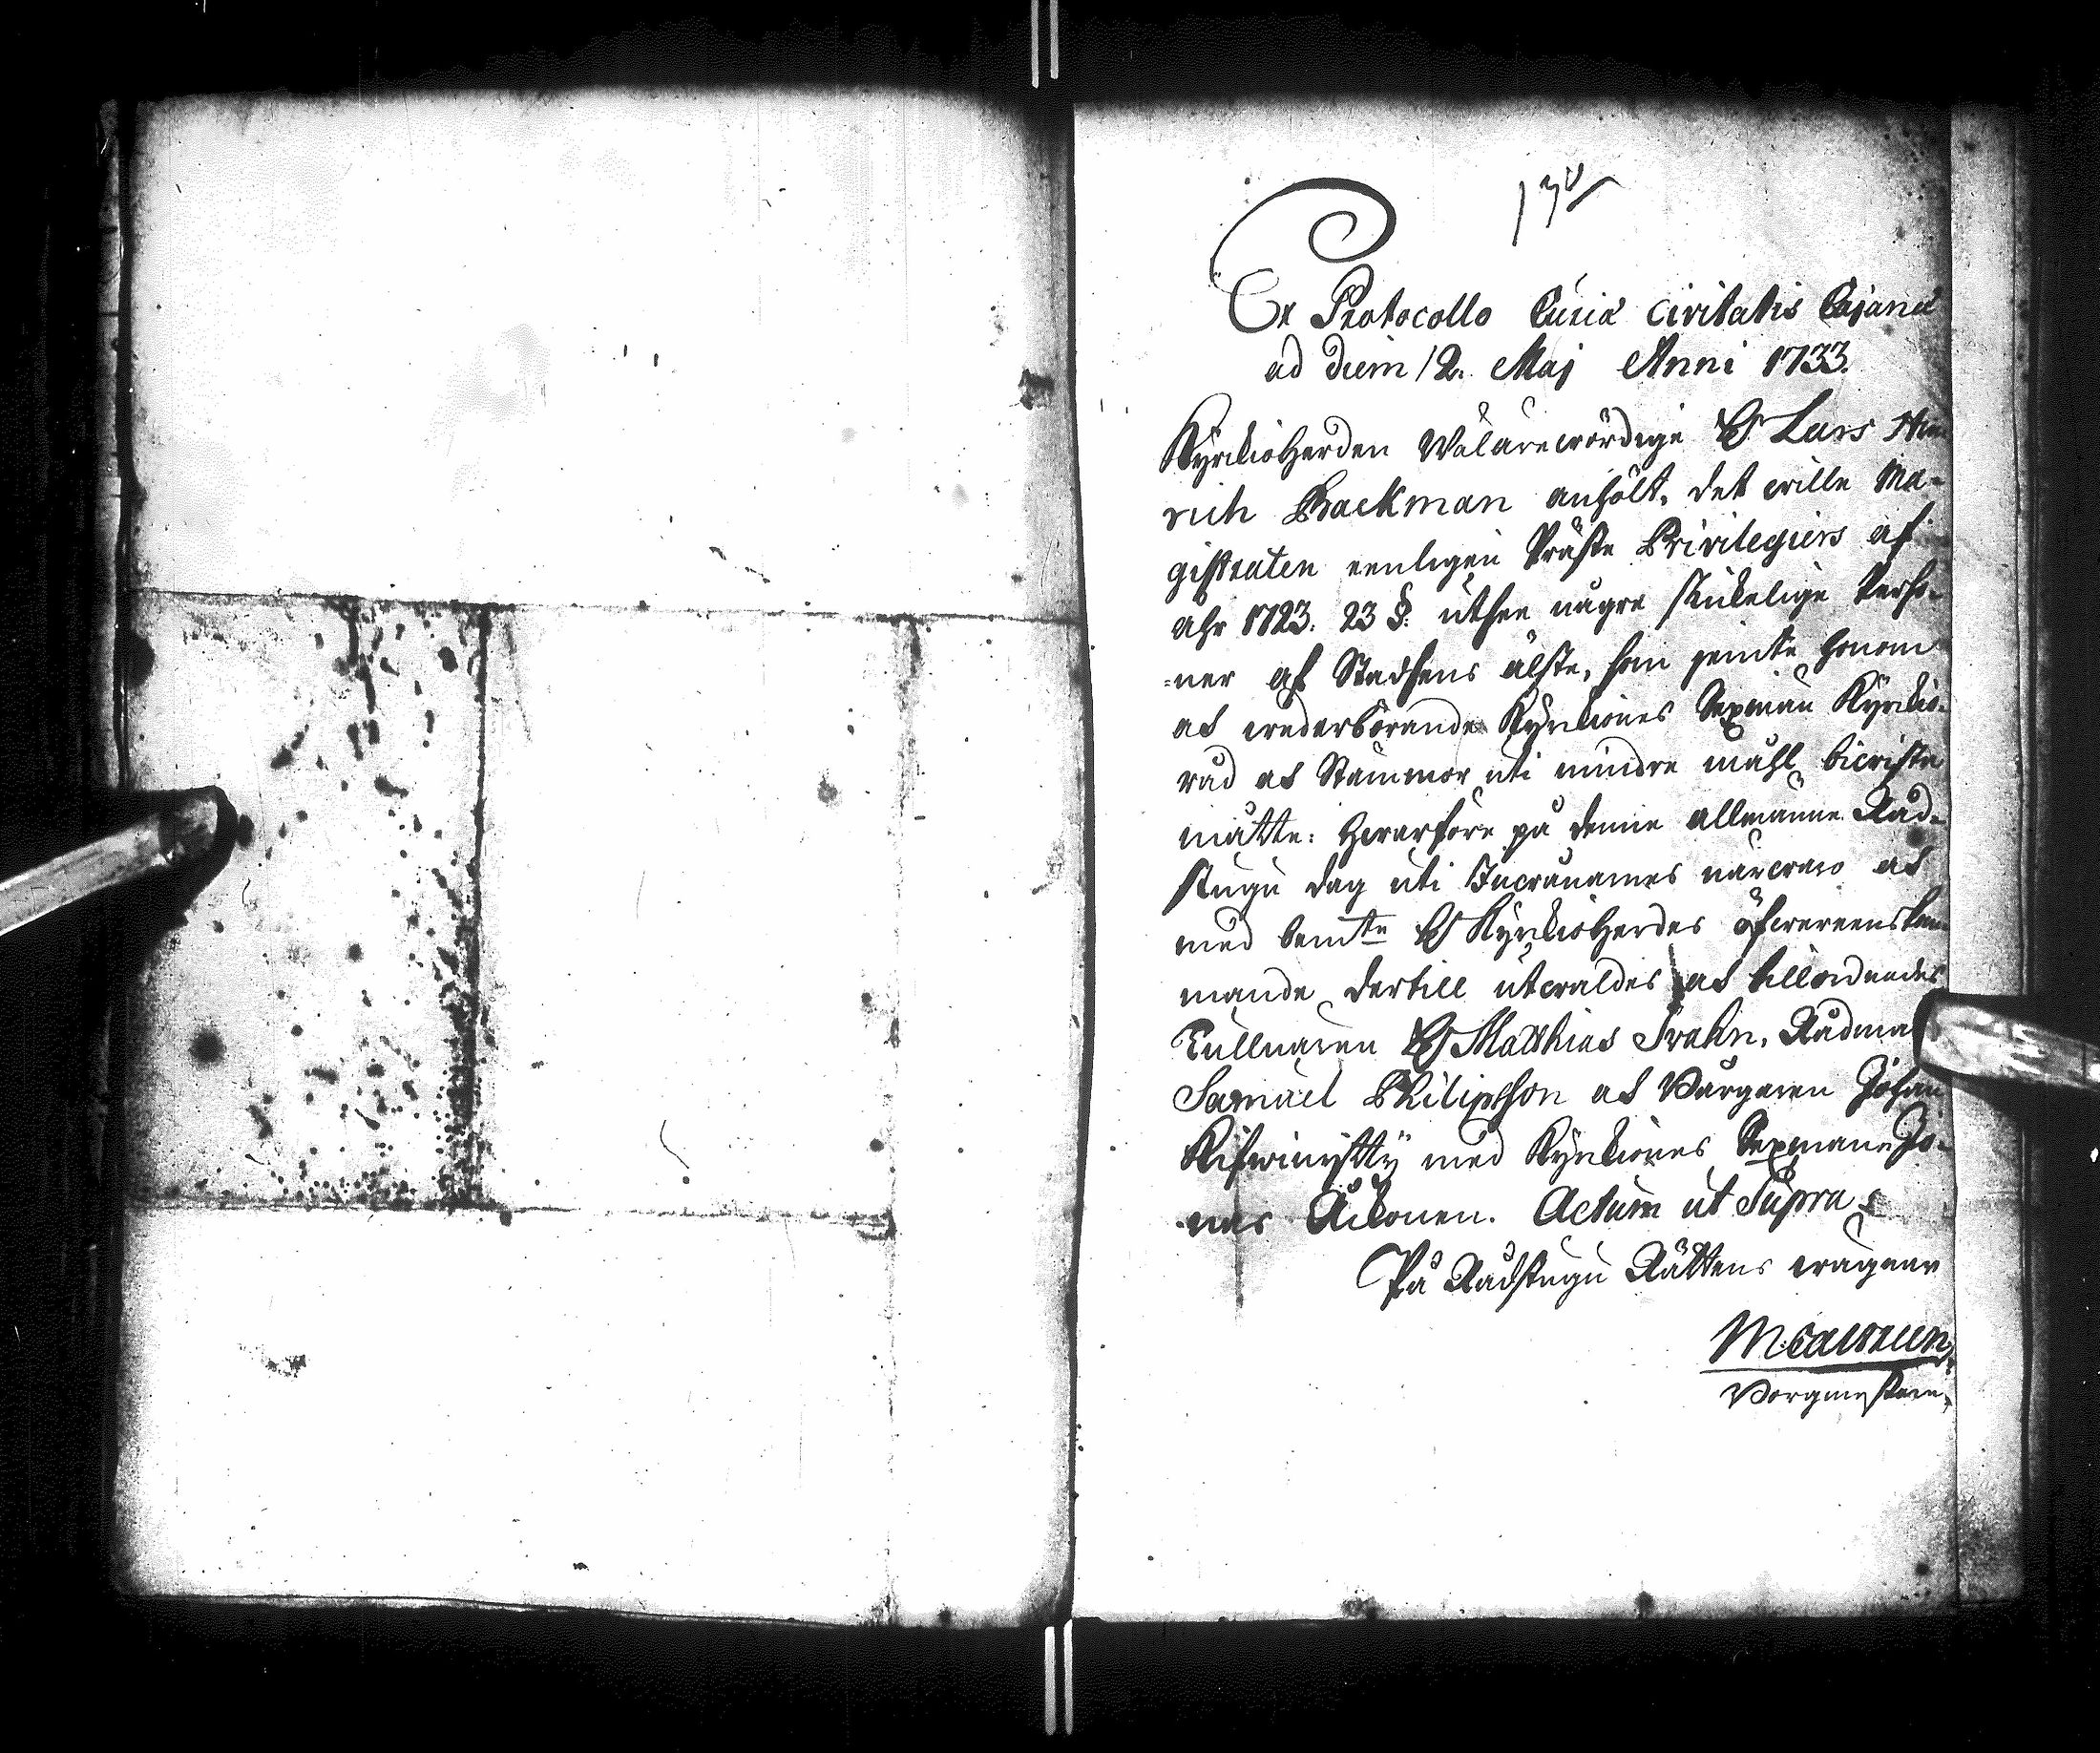 Ex Protocollo Curiæ Civitatis Cajanæ
ad diem 12. Maj Anni 1733.
Kyrkioherden Wälärewördige H Lars Hin
rich Backman anhölt, det wille Ma-
gistraten eenligen Präste Privilegiers af
åhr 1723. 23 §. uthsee någre skickelige Perso-
ner af Stadsens älste, som jemte honom
ad wederbörande Kyrkiones Sexman Kyrkio-
råd at Stämmor uti mindre måhl biwista
måtte: Hwarföre på denne allmänne Råd-
stugu dag uti Inwånarnes närwaro at
med bemte H Kyrkioherdes öfwereenskom
mande dertill utwaldes at tillordnades
Tullnären H Matthias Frahn, Rådman
Samuel Philipsson at Borgaren Johan
med Kyrkiones Sexman Jo-
nas Äikonen. Actum ut Supra
På Rådstugu Rättens wägnar
Borgmestare